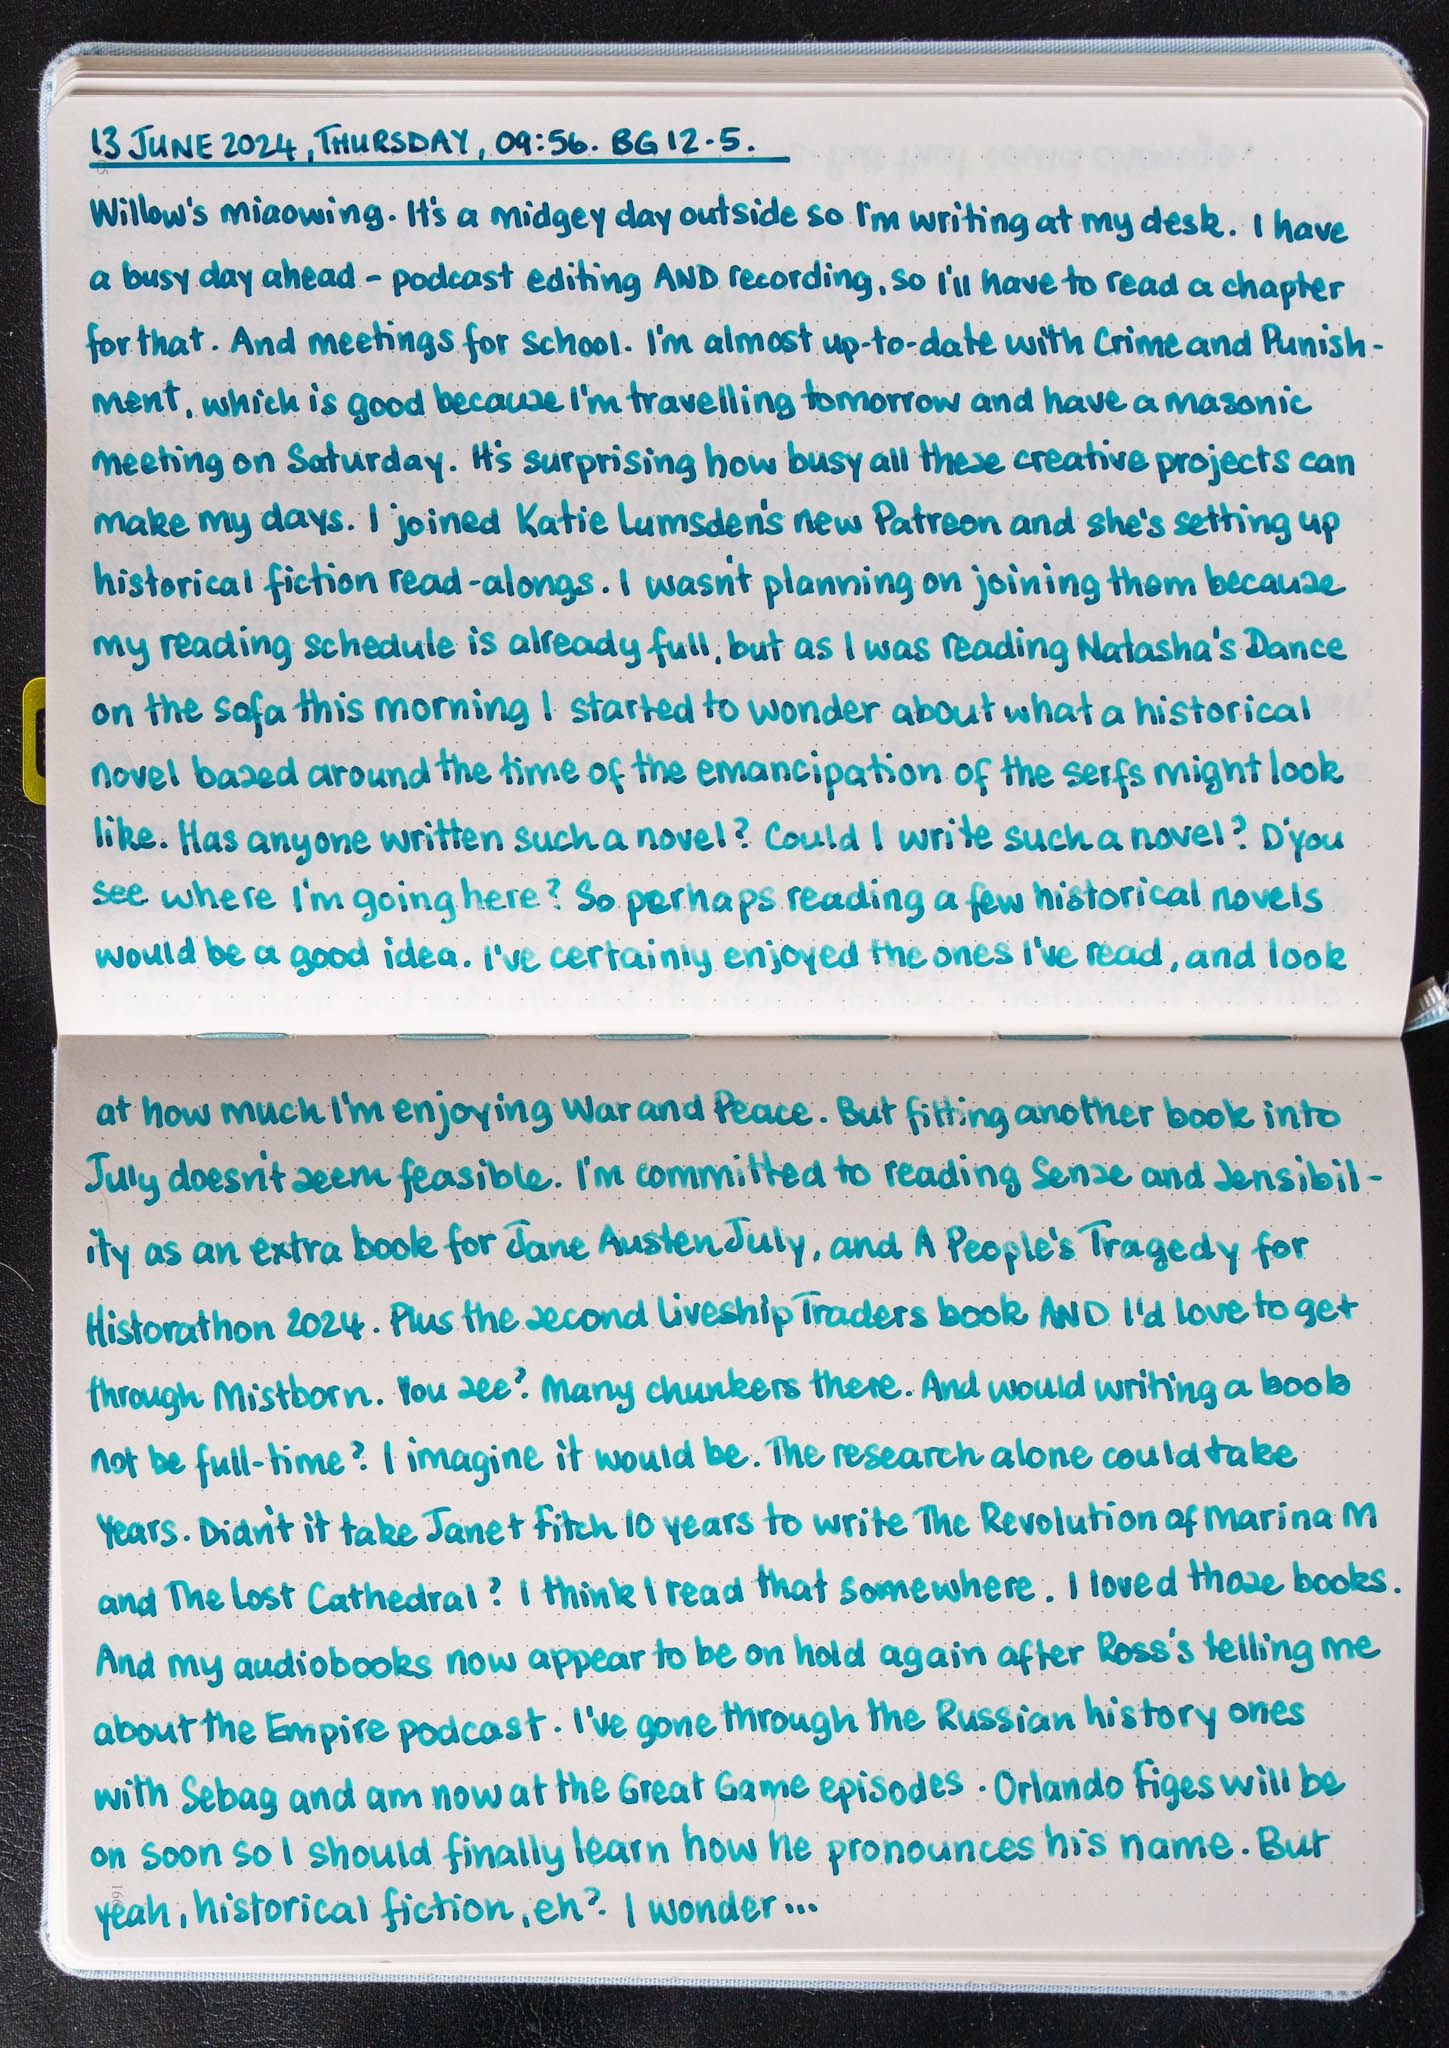 13 JUNE 2024, THURSDAY, 09:56. BG 12.5.
Willow's miaowing. It's a midgey day outside so I'm writing at my desk. I have
a busy day ahead - podcast editing AND recording, so I'll have to read a chapter
for that. And meetings for school. I'm almost up-to-date with Crime and Punish-
ment, which is good because I'm travelling tomorrow and have a masonic
meeting on Saturday. It's surprising how busy all these creative projects can
make my days. I joined Katie Lumsden's new Patreon and she's setting up
historical fiction read-alongs. I wasn't planning on joining them because
my reading schedule is already full, but as I was reading Natasha's Dance
on the sofa this morning I started to wonder about what a historical
novel based around the time of the emancipation of the serfs might look
like. Has anyone written such a novel? Could I write such a novel? D'you
see where I'm going here? So perhaps reading a few historical novels
would be a good idea. I've certainly enjoyed the ones I've read, and look
at how much I'm enjoying War and Peace. But fitting another book into
July doesn't seem feasible. I'm committed to reading Sense and Sensibil-
ity as an extra book for Jane Austen July, and A People's Tragedy for
Historathon 2024. Plus the second Liveship Traders book AND I'd love to get
through Mistborn. You see? Many chunkers there. And would writing a book
not be full-time? I imagine it would be. The research alone could take
years. Didn't it take Janet Fitch 10 years to write The Revolution of Marina M
and The Lost Cathedral? I think I read that somewhere. I loved those books.
And my audiobooks now appear to be on hold again after Ross's telling me
about the Empire podcast. I've gone through the Russian history ones
with Sebag and am now at the Great Game episodes. Orlando Figes will be
on soon so I should finally learn how he pronounces his name. But
yeah, historical fiction, eh? I wonder...